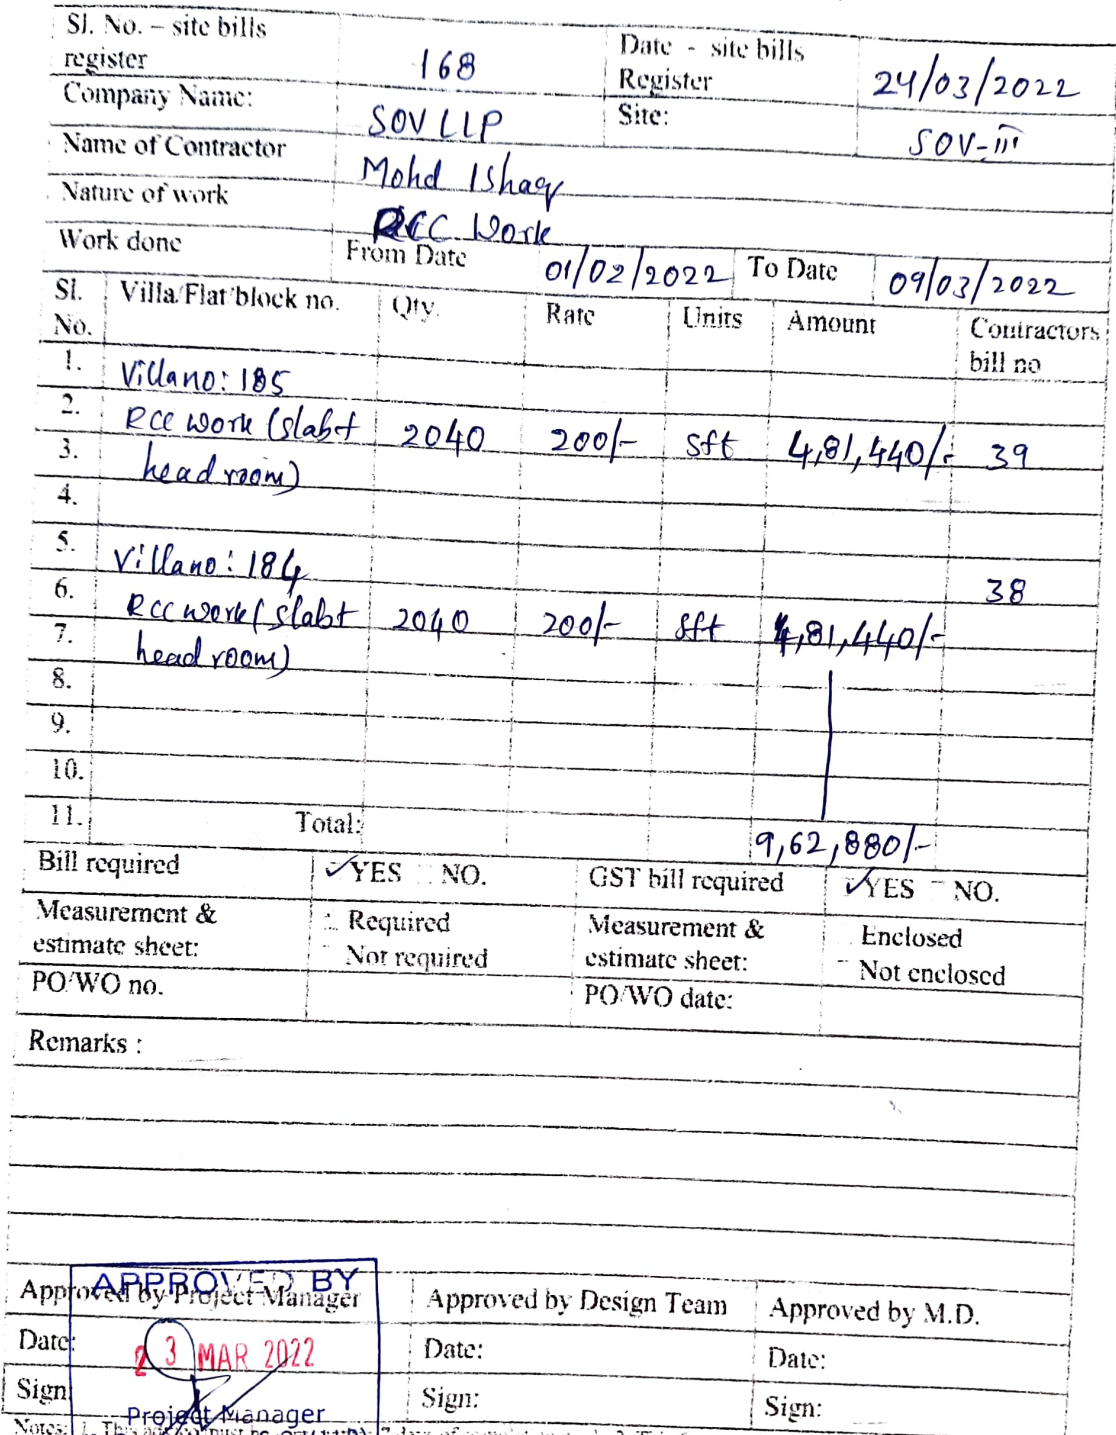 Sl. No. – site bills register 168 Date - site bills Register 24/03/2022
Company Name: SOV LLP Site: SOV-III
Name of Contractor Mohd Ishaq
Nature of work RCC Work
Work done From Date 01/02/2022 To Date 09/03/2022
Sl. No. Villa/Flat/block no. Qty. Rate Units Amount Contractors bill no
1. Villa no: 185
2. RCC work (slab+ 2040 200/- sft 4,81,440/- 39
3. head room)
4.
5. Villa no: 184
38
6. RCC work (slab+ 2040 200/- sft 4,81,440/-
7. head room)
8.
9.
10.
11. Total: 9,62,880/-
Bill required ✓YES NO. GST bill required ✓YES NO.
Measurement & estimate sheet: Required Not required Measurement & estimate sheet: Enclosed Not enclosed
PO/WO no. PO/WO date:
Remarks :
APPROVED BY
Approved by Project Manager Approved by Design Team Approved by M.D.
Date: 23 MAR 2022 Date: Date:
Sign Sign: Sign:
Project Manager
Notes: 1. This